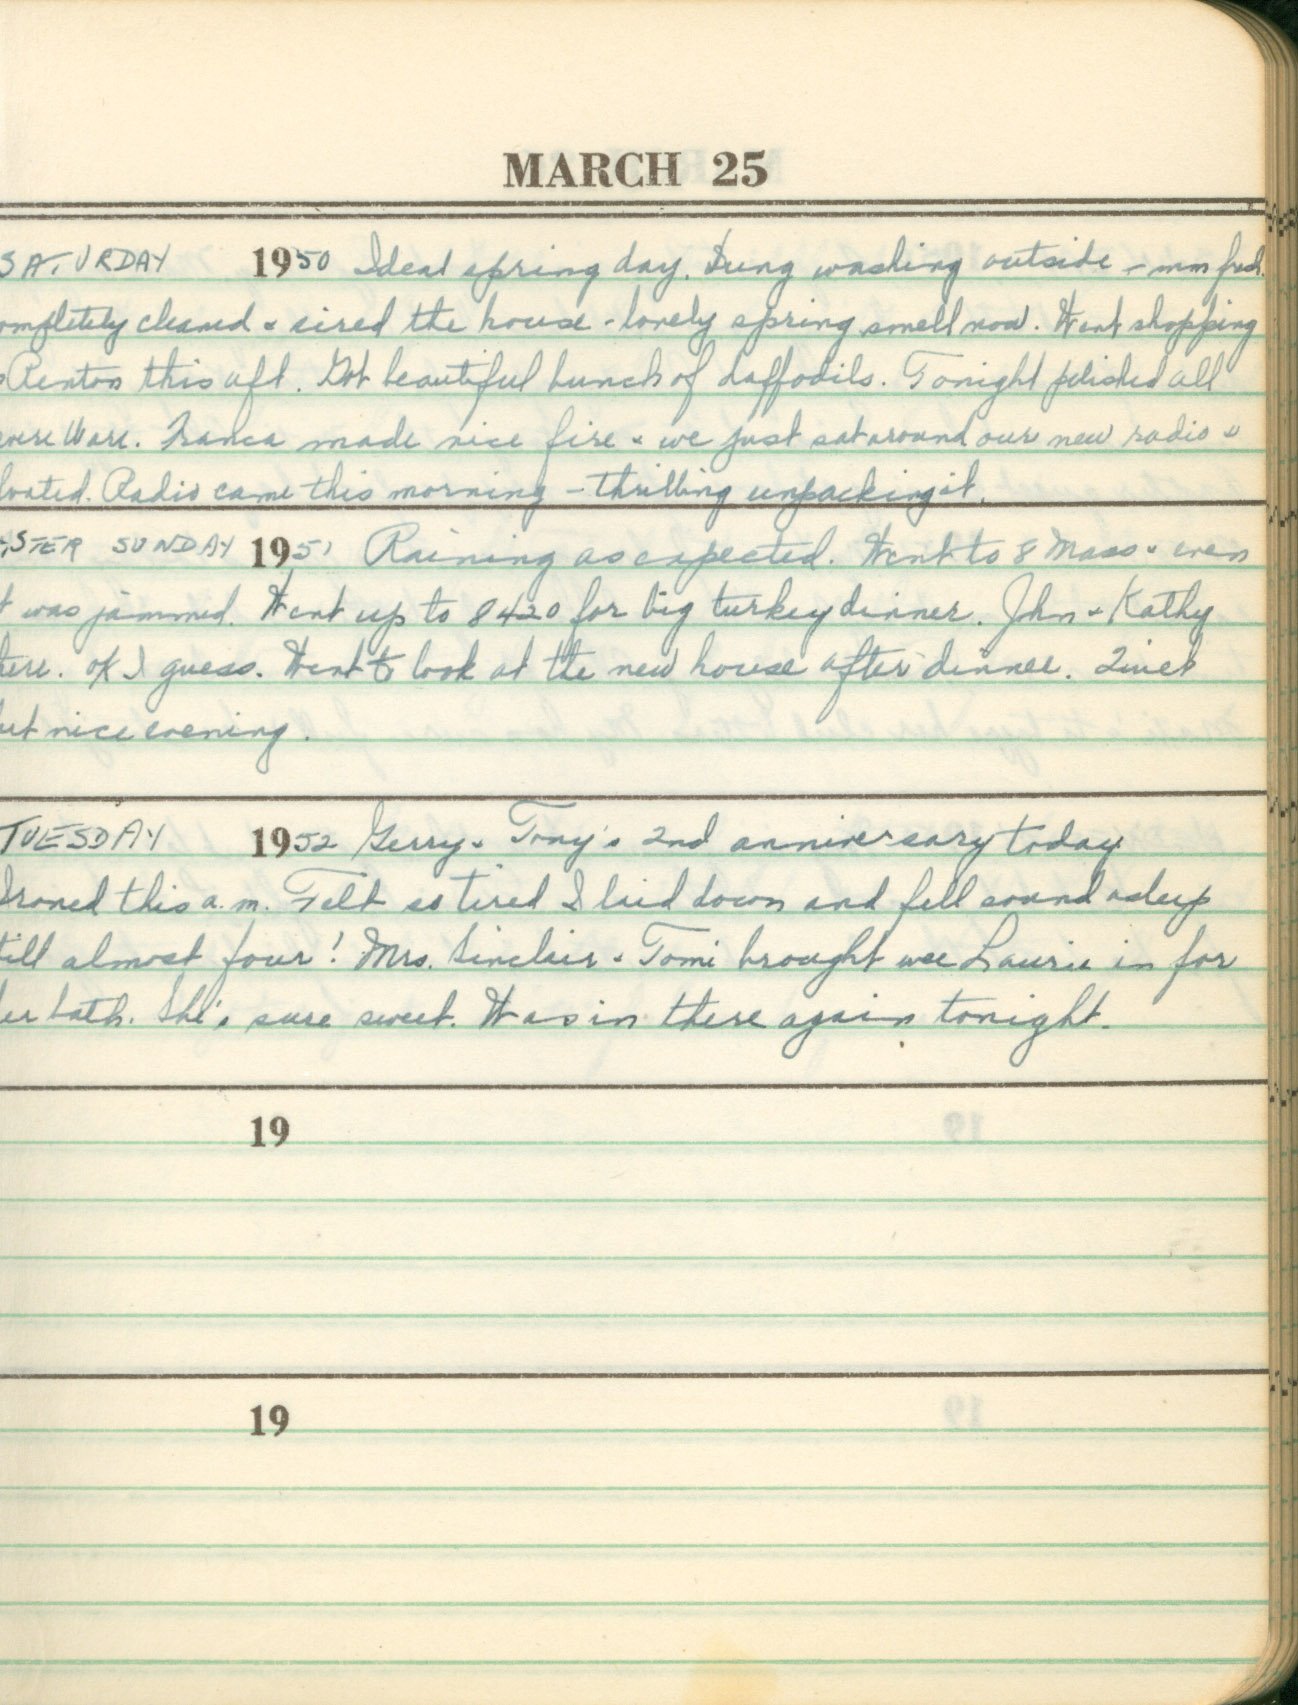 MARCH 25
SATURDAY 1950 Ideal spring day. Hung washing outside - mm fresh.
ompletely cleaned & aired the house - lovely spring smell now. Went shopping
Renton this aft. Got beautiful bunch of daffodils. Tonight polished all
vere Ware. Franca made nice fire & we just sat around our new radio &
loated. Radio came this morning - thrilling unpacking it.
STER SUNDAY 1951 Raining as expected. Went to 8 Mass & even
t was jammed. Went up to 8420 for big turkey dinner. John & Kathy
here. OK I guess. Went to look at the new house after dinner. Quiet
but nice evening.
TUESDAY 1952 Gerry & Tony's 2nd anniversary today
Ironed this a.m. Felt so tired I laid down and fell sound asleep
till almost four! Mrs. Sinclair & Tomi brought wee Laurie in for
her bath. She's sure sweet. Was in there again tonight.
19
19